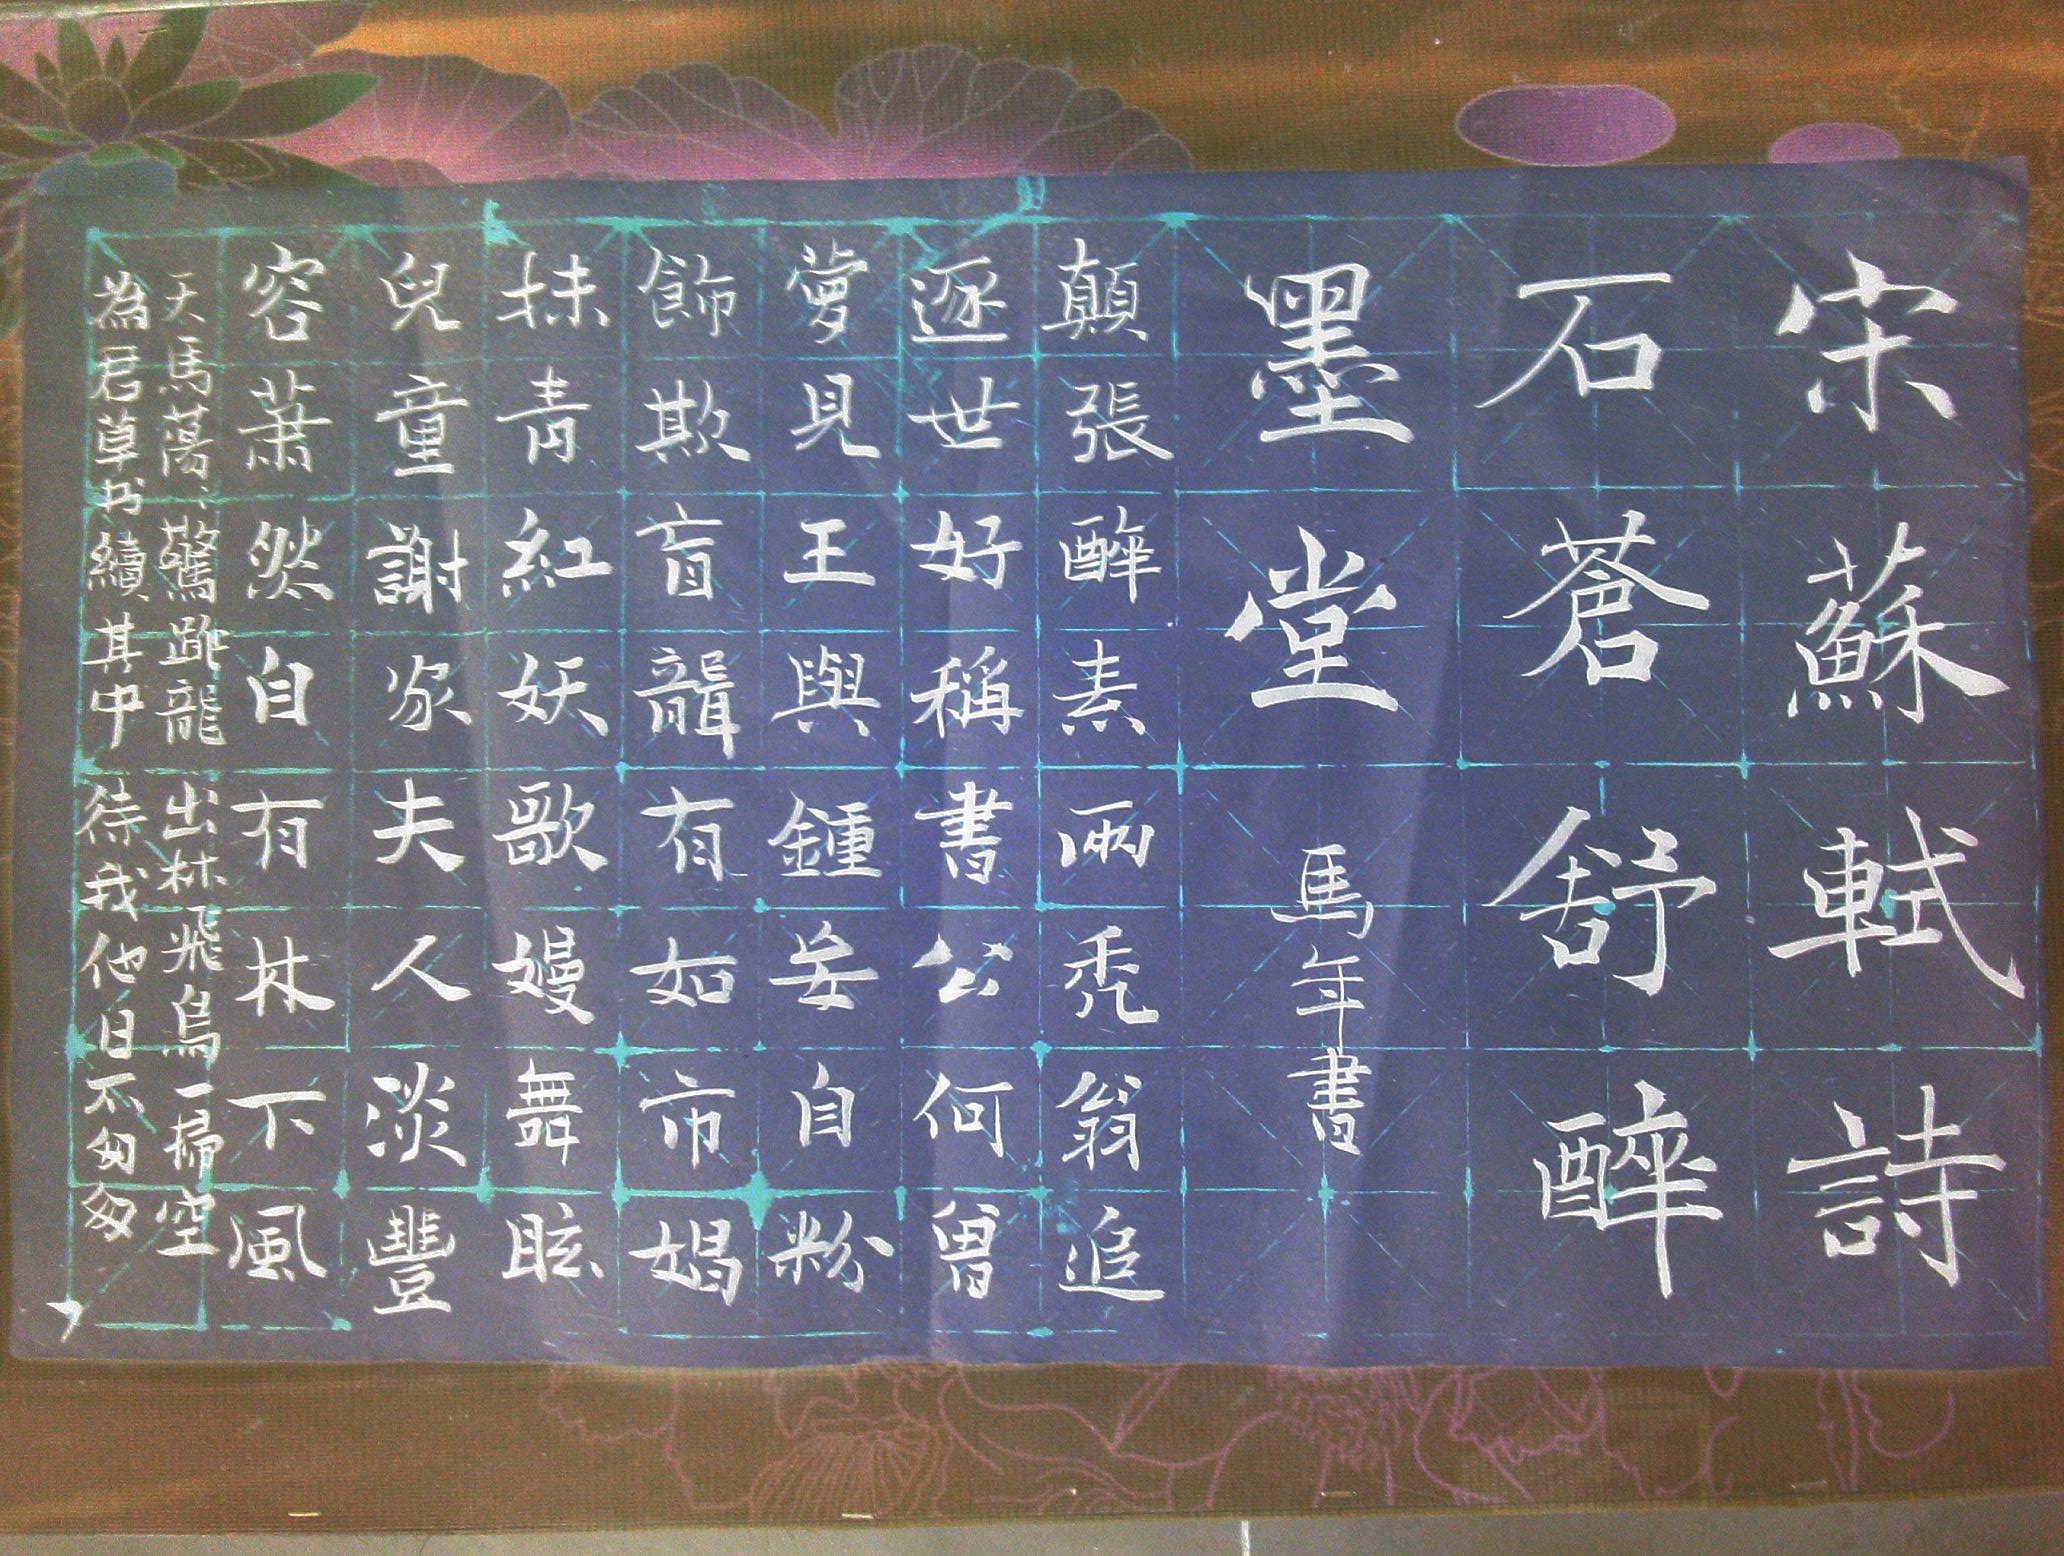 宋蘇軾詩
石蒼舒醉
墨堂 馬年書
顛張醉素兩禿翁追
逐世好稱書公何曾
夢見王與鍾妄自粉
飾欺盲聾有如市娼
抹青紅妖歌嫚舞眩
兒童謝家夫人淡豐
容蕭然自有林下風
天馬蕩、驚跳龍出林飛鳥一掃空
為君草书續其中待我他日不匆匆